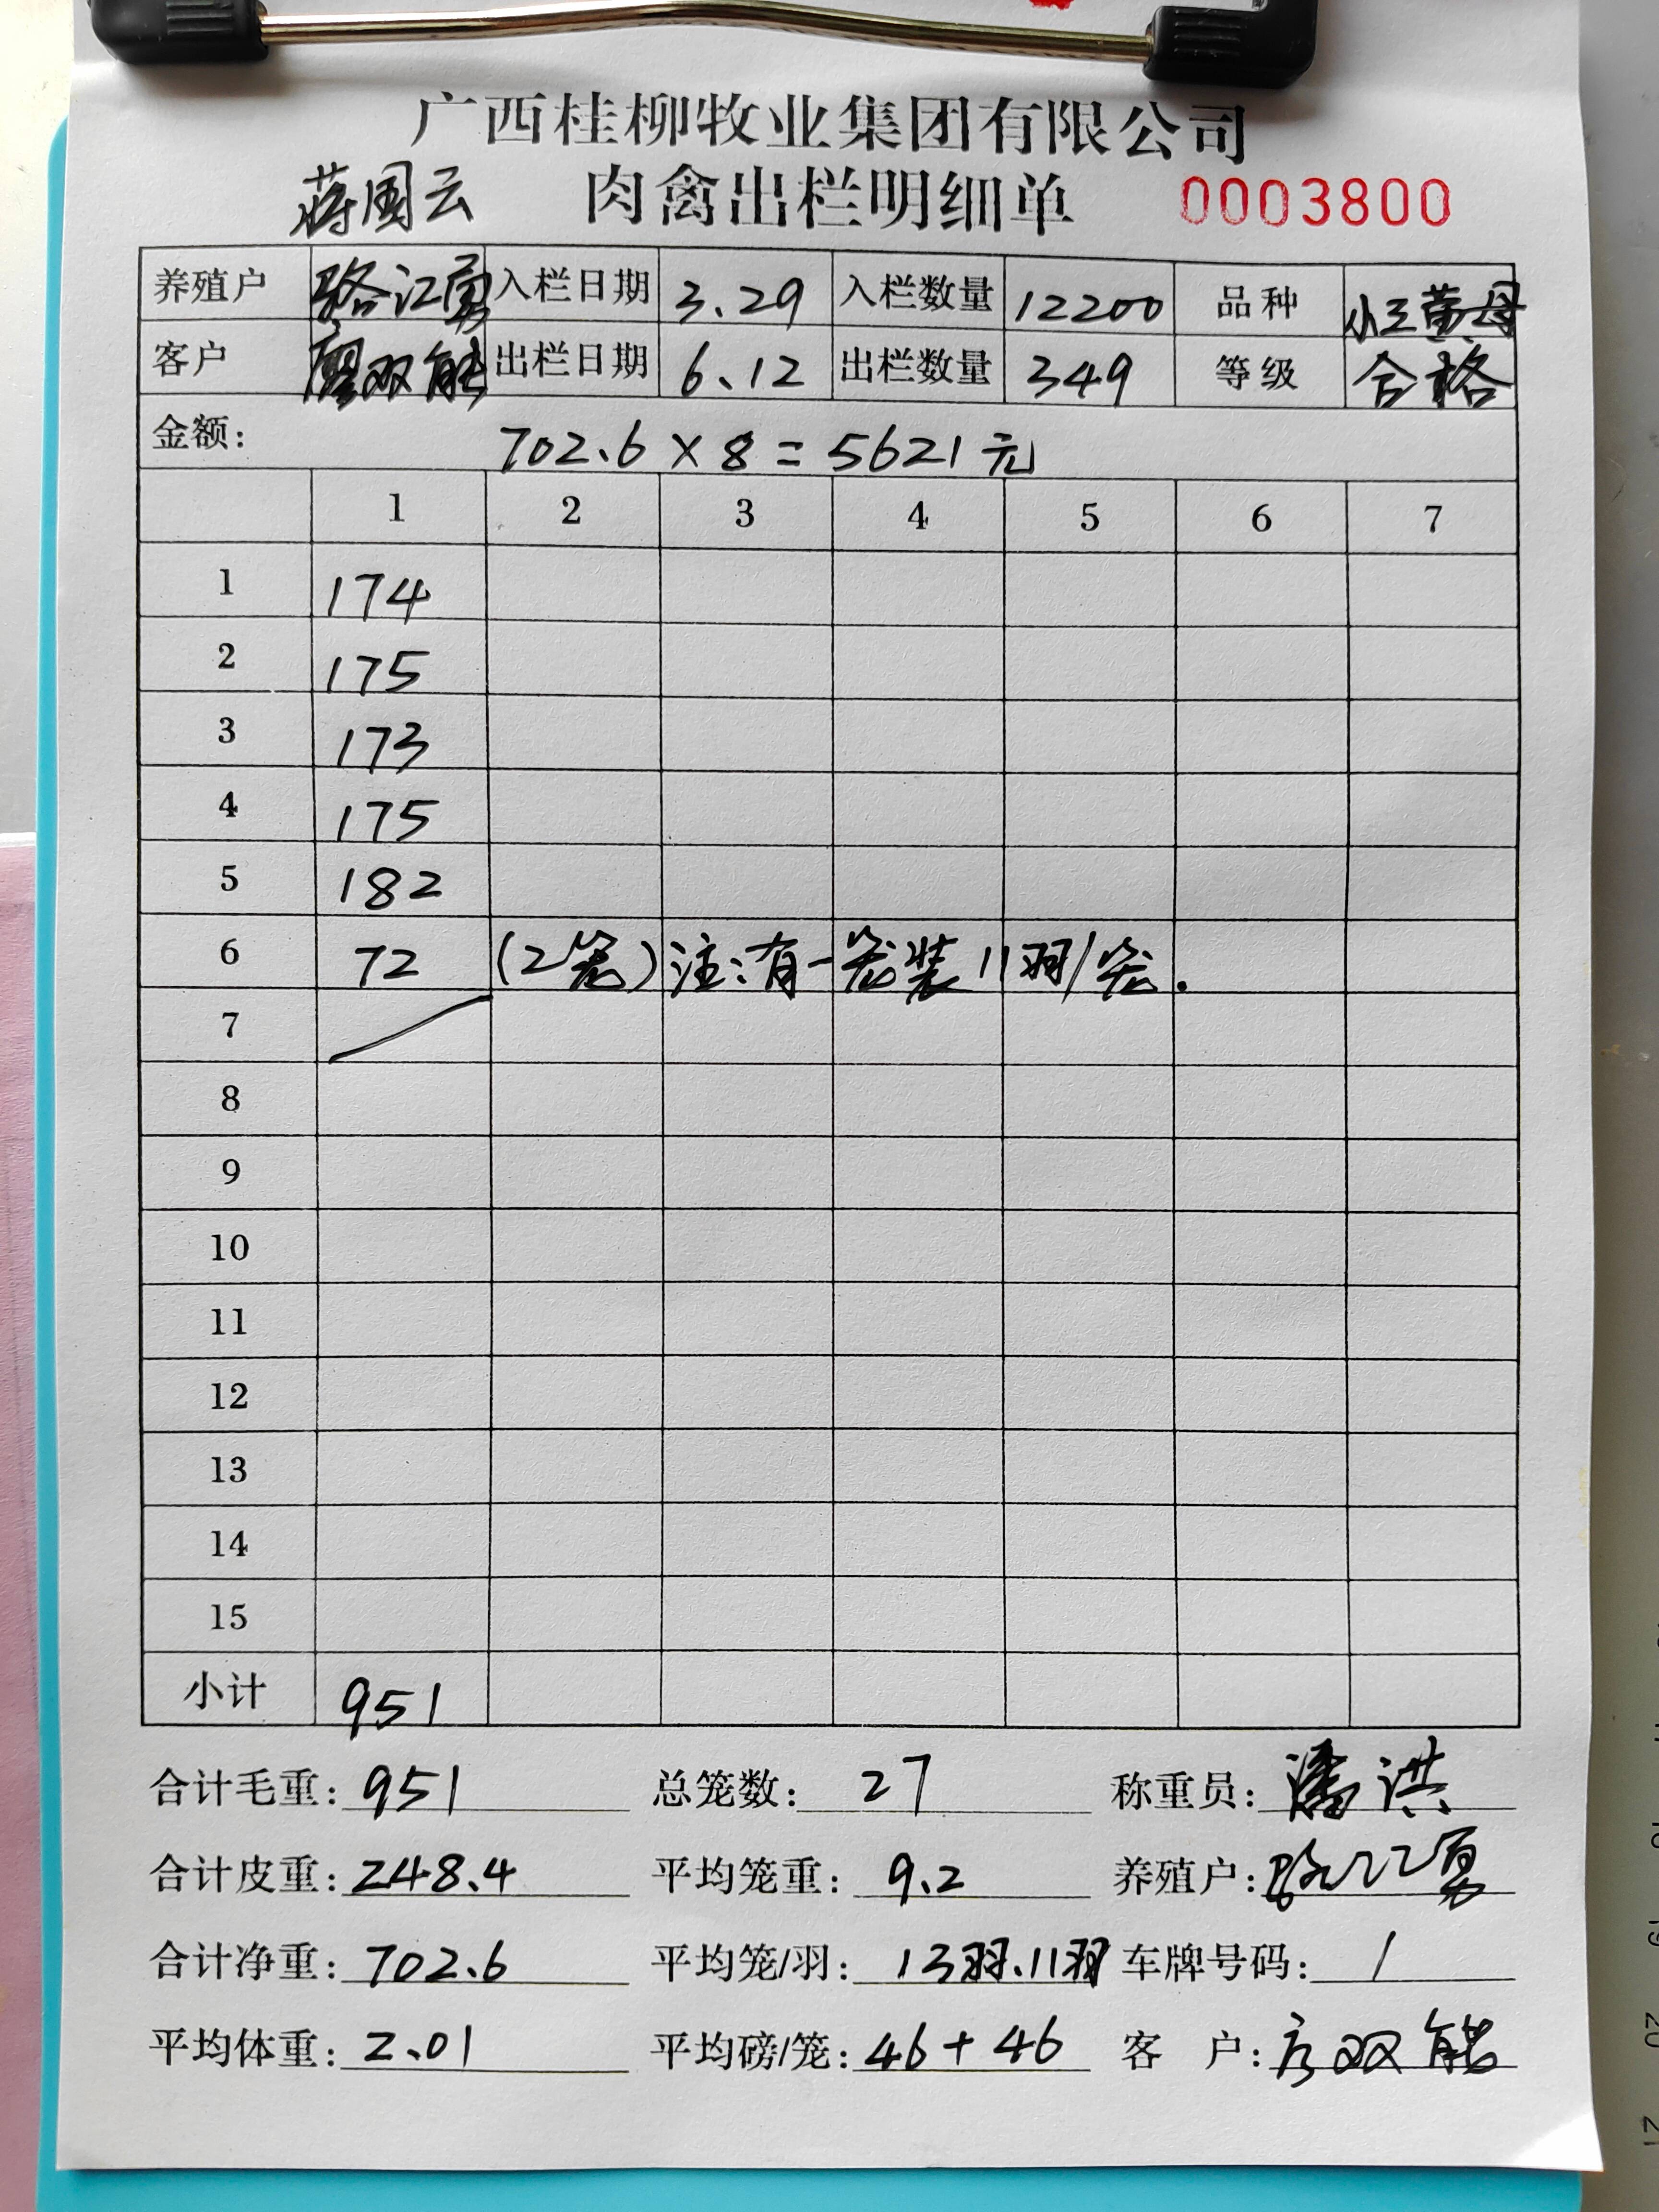 广西桂柳牧业集团有限公司
蒋国云 肉禽出栏明细单 0003800
养殖户 骆江勇 入栏日期 3.29 入栏数量 12200 品种 小三黄母
客户 廖双能 出栏日期 6.12 出栏数量 349 等级 合格
金额: 702.6 × 8 = 5621元
1 2 3 4 5 6 7
1 174
2 175
3 173
4 175
5 182
6 72 (2笼) 注:有一笼装11羽/笼.
7
8
9
10
11
12
13
14
15
小计 951
合计毛重: 951 总笼数: 27 称重员: 潘洪
合计皮重: 248.4 平均笼重: 9.2 养殖户: 骆江勇
合计净重: 702.6 平均笼/羽: 13羽.11羽 车牌号码: /
平均体重: 2.01 平均磅/笼: 46+46 客 户: 廖双能